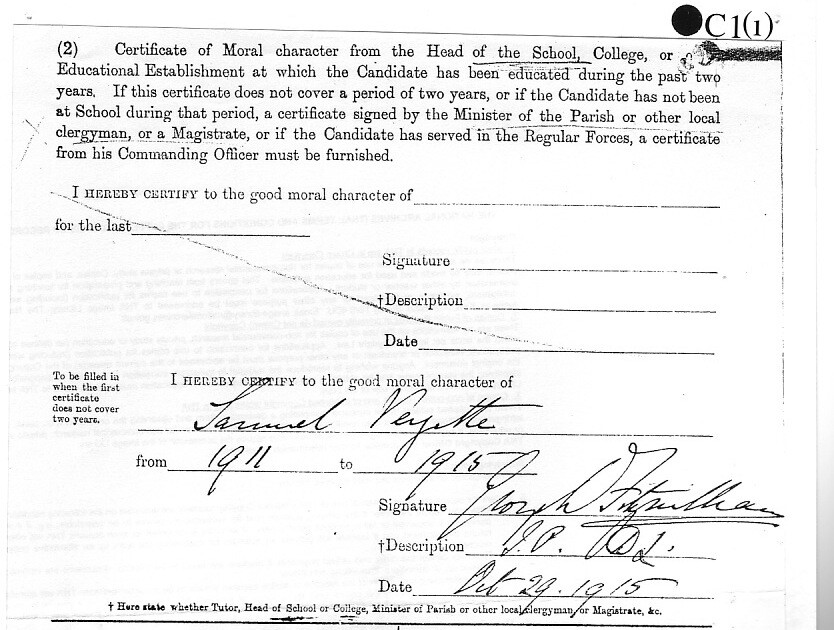 C1(1)
(2) Certificate of Moral character from the Head of the School, College, or
Educational Establishment at which the Candidate has been educated during the past two
years. If this certificate does not cover a period of two years, or if the Candidate has not been
at School during that period, a certificate signed by the Minister of the Parish or other local
clergyman, or a Magistrate, or if the Candidate has served in the Regular Forces, a certificate
from his Commanding Officer must be furnished.
I HEREBY CERTIFY to the good moral character of
for the last
Signature
†Description
Date
To be filled in
when the first
certificate
does not cover
two years.
I HEREBY CERTIFY to the good moral character of
Samuel
from 1911 to 1915
Signature Joseph
†Description J.P.
Date Oct 29. 1915
† Here state whether Tutor, Head of School or College, Minister of Parish or other local clergyman or Magistrate, &c.